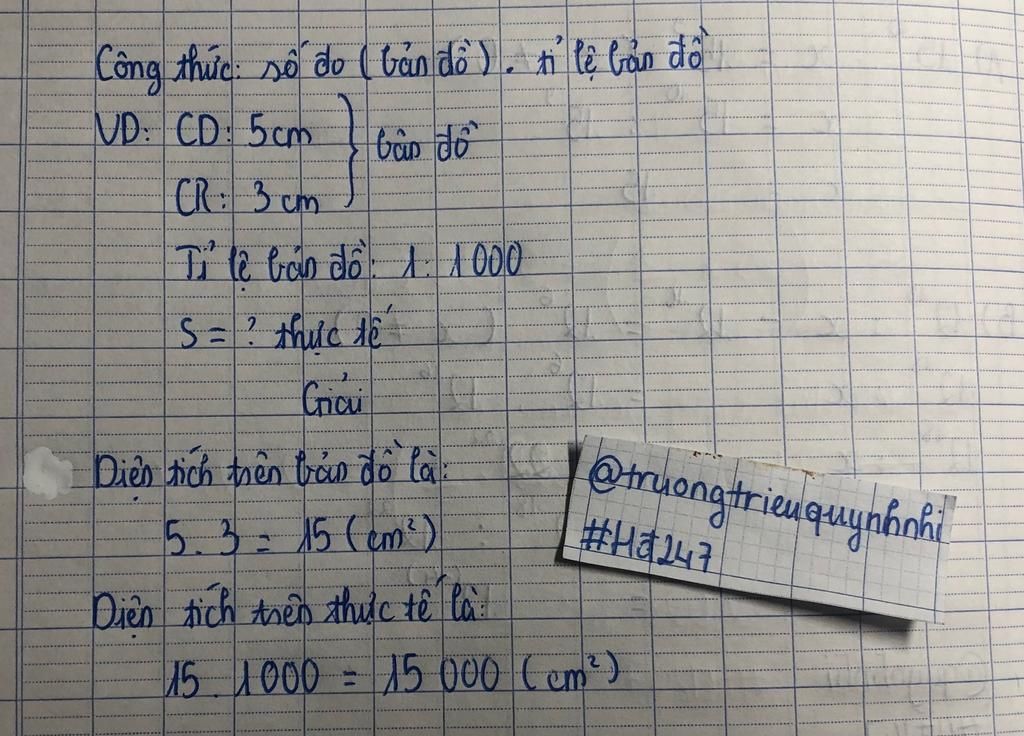 Công thức: số đo (bản đồ). tỉ lệ bản đồ
VD: CD: 5cm
CR: 3cm
bản đồ
Tỉ lệ bản đồ: 1:1000
S = ? thực tế
Giải
Diện tích trên bản đồ là:
5.3 = 15 (cm²)
Diện tích trên thực tế là:
15.1000 = 15 000 (cm²)
@truongtrieuquynhnhi
#Hđ247